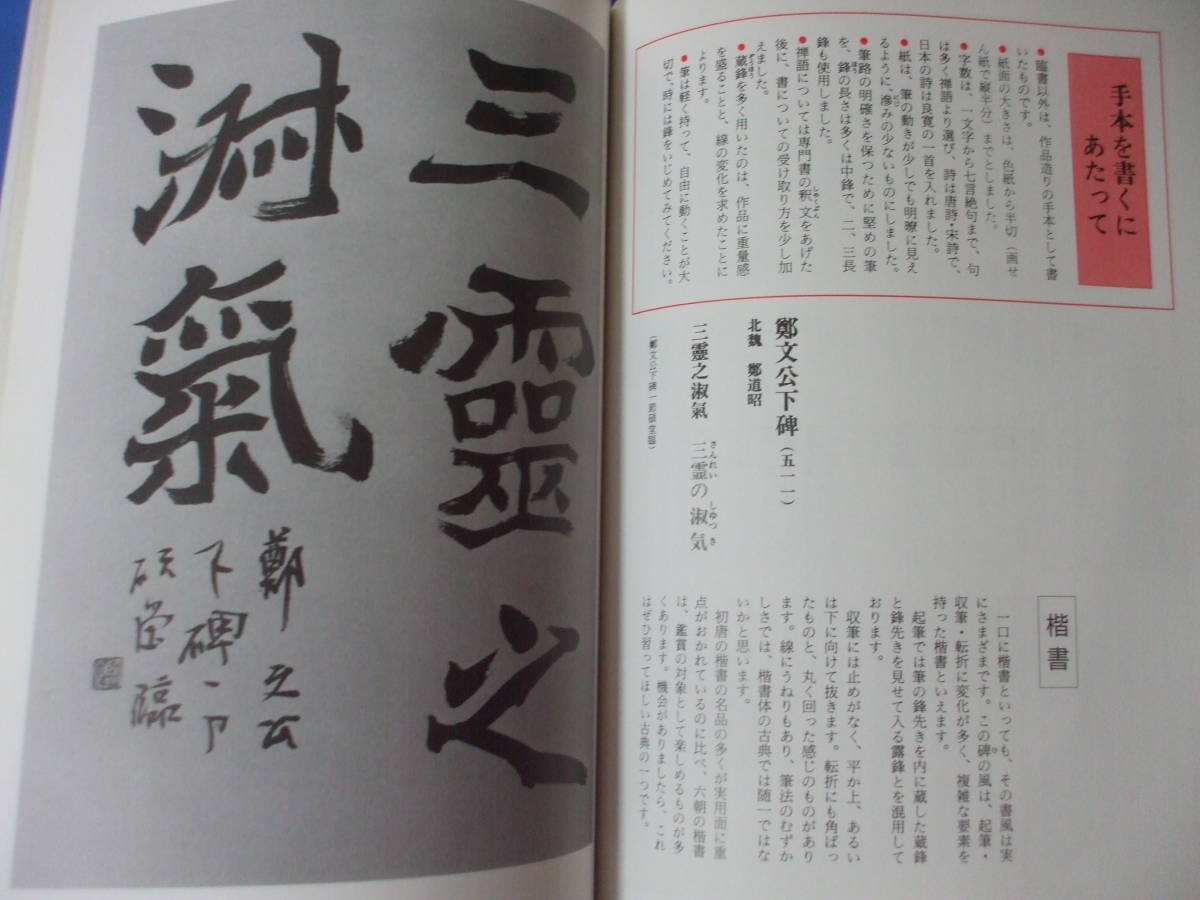 手本を書くに
あたって
●臨書以外は、作品造りの手本として書
いたものです。
●紙面の大きさは、色紙から半切（画せ
ん紙で縦半分）までとしました。
●字数は、一文字から七言絶句まで、句
は多く禅語より選び、詩は唐詩・宋詩で、
日本の詩は良寛の一首を入れました。
●紙は、筆の動きが少しでも明瞭に見え
るように、滲みの少ないものにしました。
●筆路の明確さを保つために堅めの筆
を、鋒の長さは多くは中鋒で、二、三長
鋒も使用しました。
●禅語については専門書の釈文をあげた
後に、書についての受け取り方を少し加
えました。
●蔵鋒を多く用いたのは、作品に重量感
を盛ることと、線の変化を求めたことに
よります。
●筆は軽く持って、自由に動くことが大
切で、時には鋒をいじめてみてください。
鄭文公下碑（五一一）
北魏　鄭道昭
三靈之淑氣　三霊の淑気
さんれい　しゆつき
楷書
一口に楷書といっても、その書風は実
にさまざまです。この碑の風は、起筆・
収筆・転折に変化が多く、複雑な要素を
持った楷書といえます。
起筆では筆の鋒先きを内に蔵した蔵鋒
と鋒先きを見せて入る露鋒とを混用して
おります。
収筆には止めがなく、平か上、あるい
は下に向けて抜きます。転折にも角ばっ
たものと、丸く回った感じのものがあり
ます。線にうねりもあり、筆法のむずか
しさでは、楷書体の古典では随一ではな
いかと思います。
初唐の楷書の名品の多くが実用面に重
点がおかれているのに比べ、六朝の楷書
は、鑑賞の対象として楽しめるものが多
くあります。機会がありましたら、これ
はぜひ習ってほしい古典の一つです。
三靈之
淑氣
鄭文公
下碑一節
碩堂臨